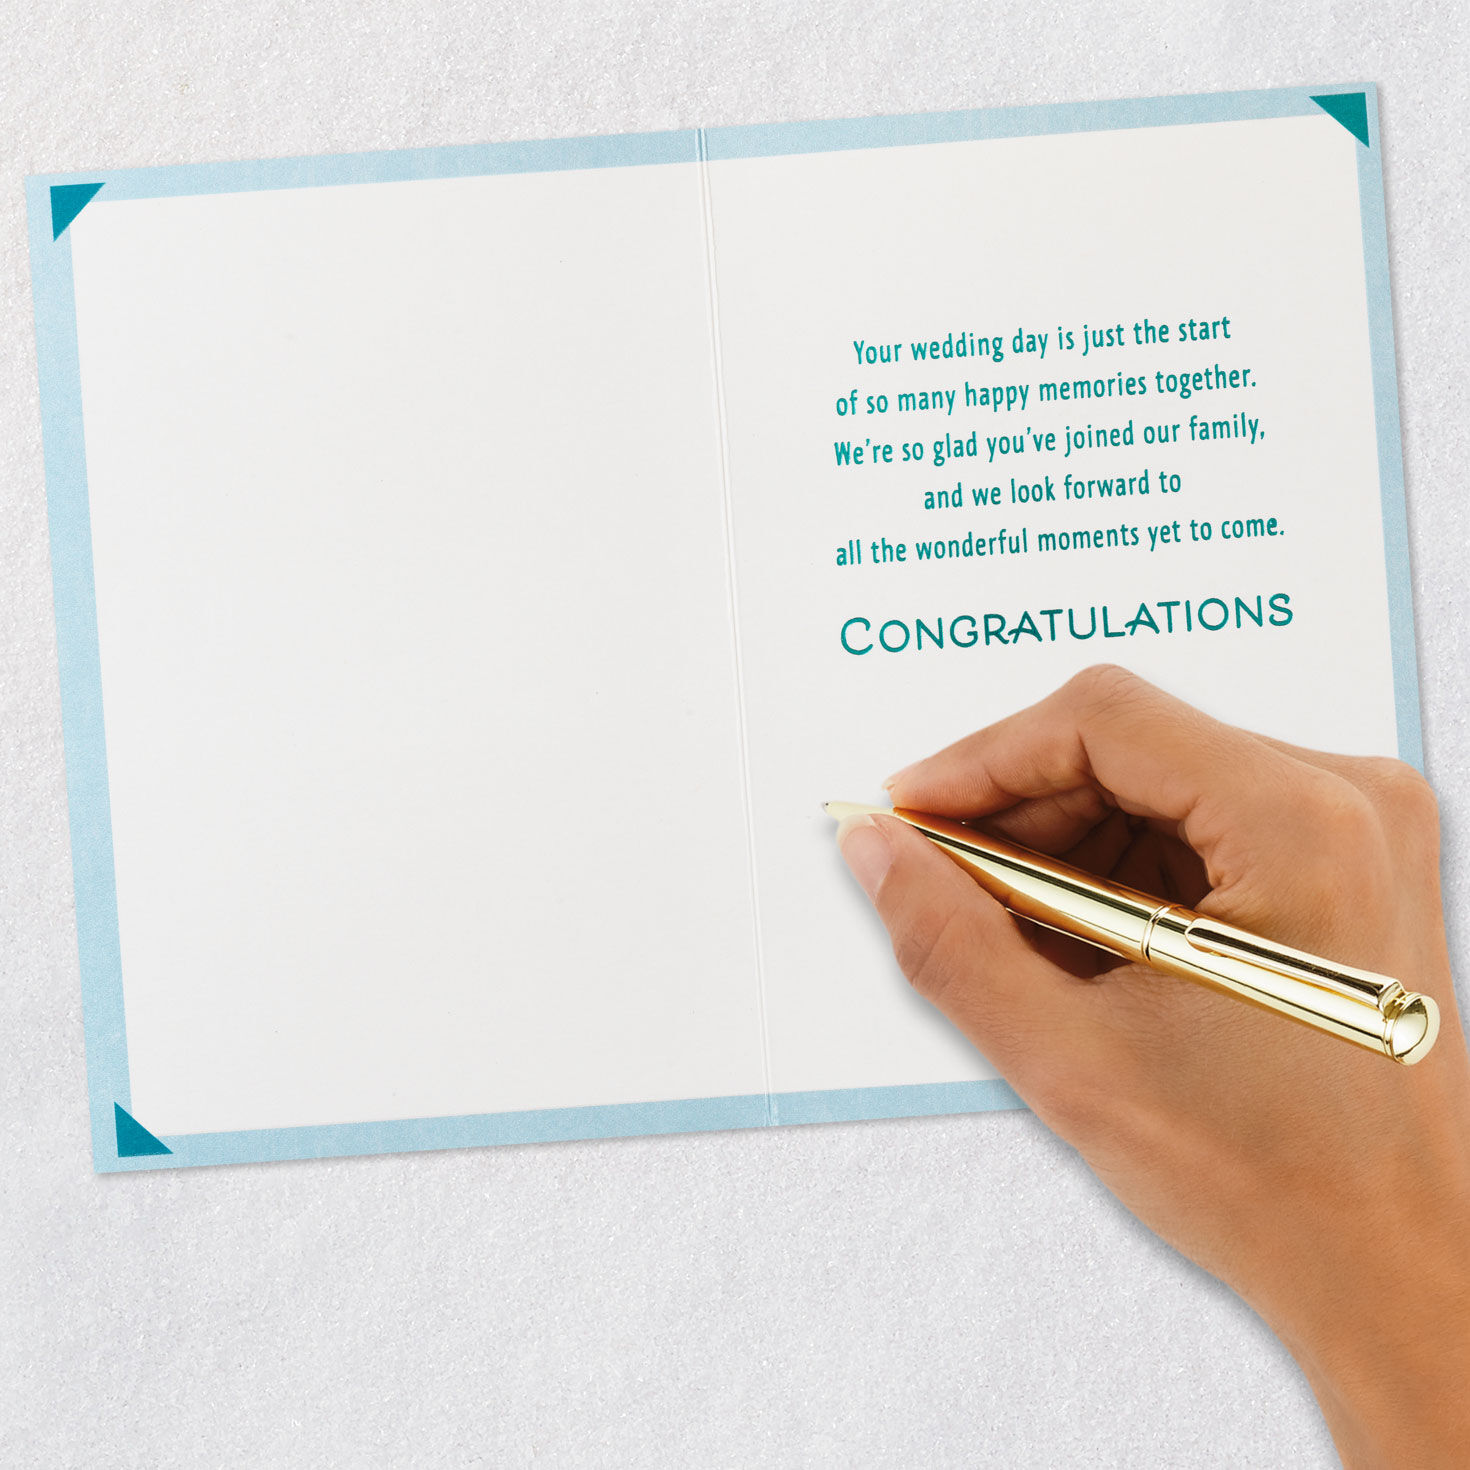 Your wedding day is just the start
of so many happy memories together.
We're so glad you've joined our family,
and we look forward to
all the wonderful moments yet to come.
CONGRATULATIONS